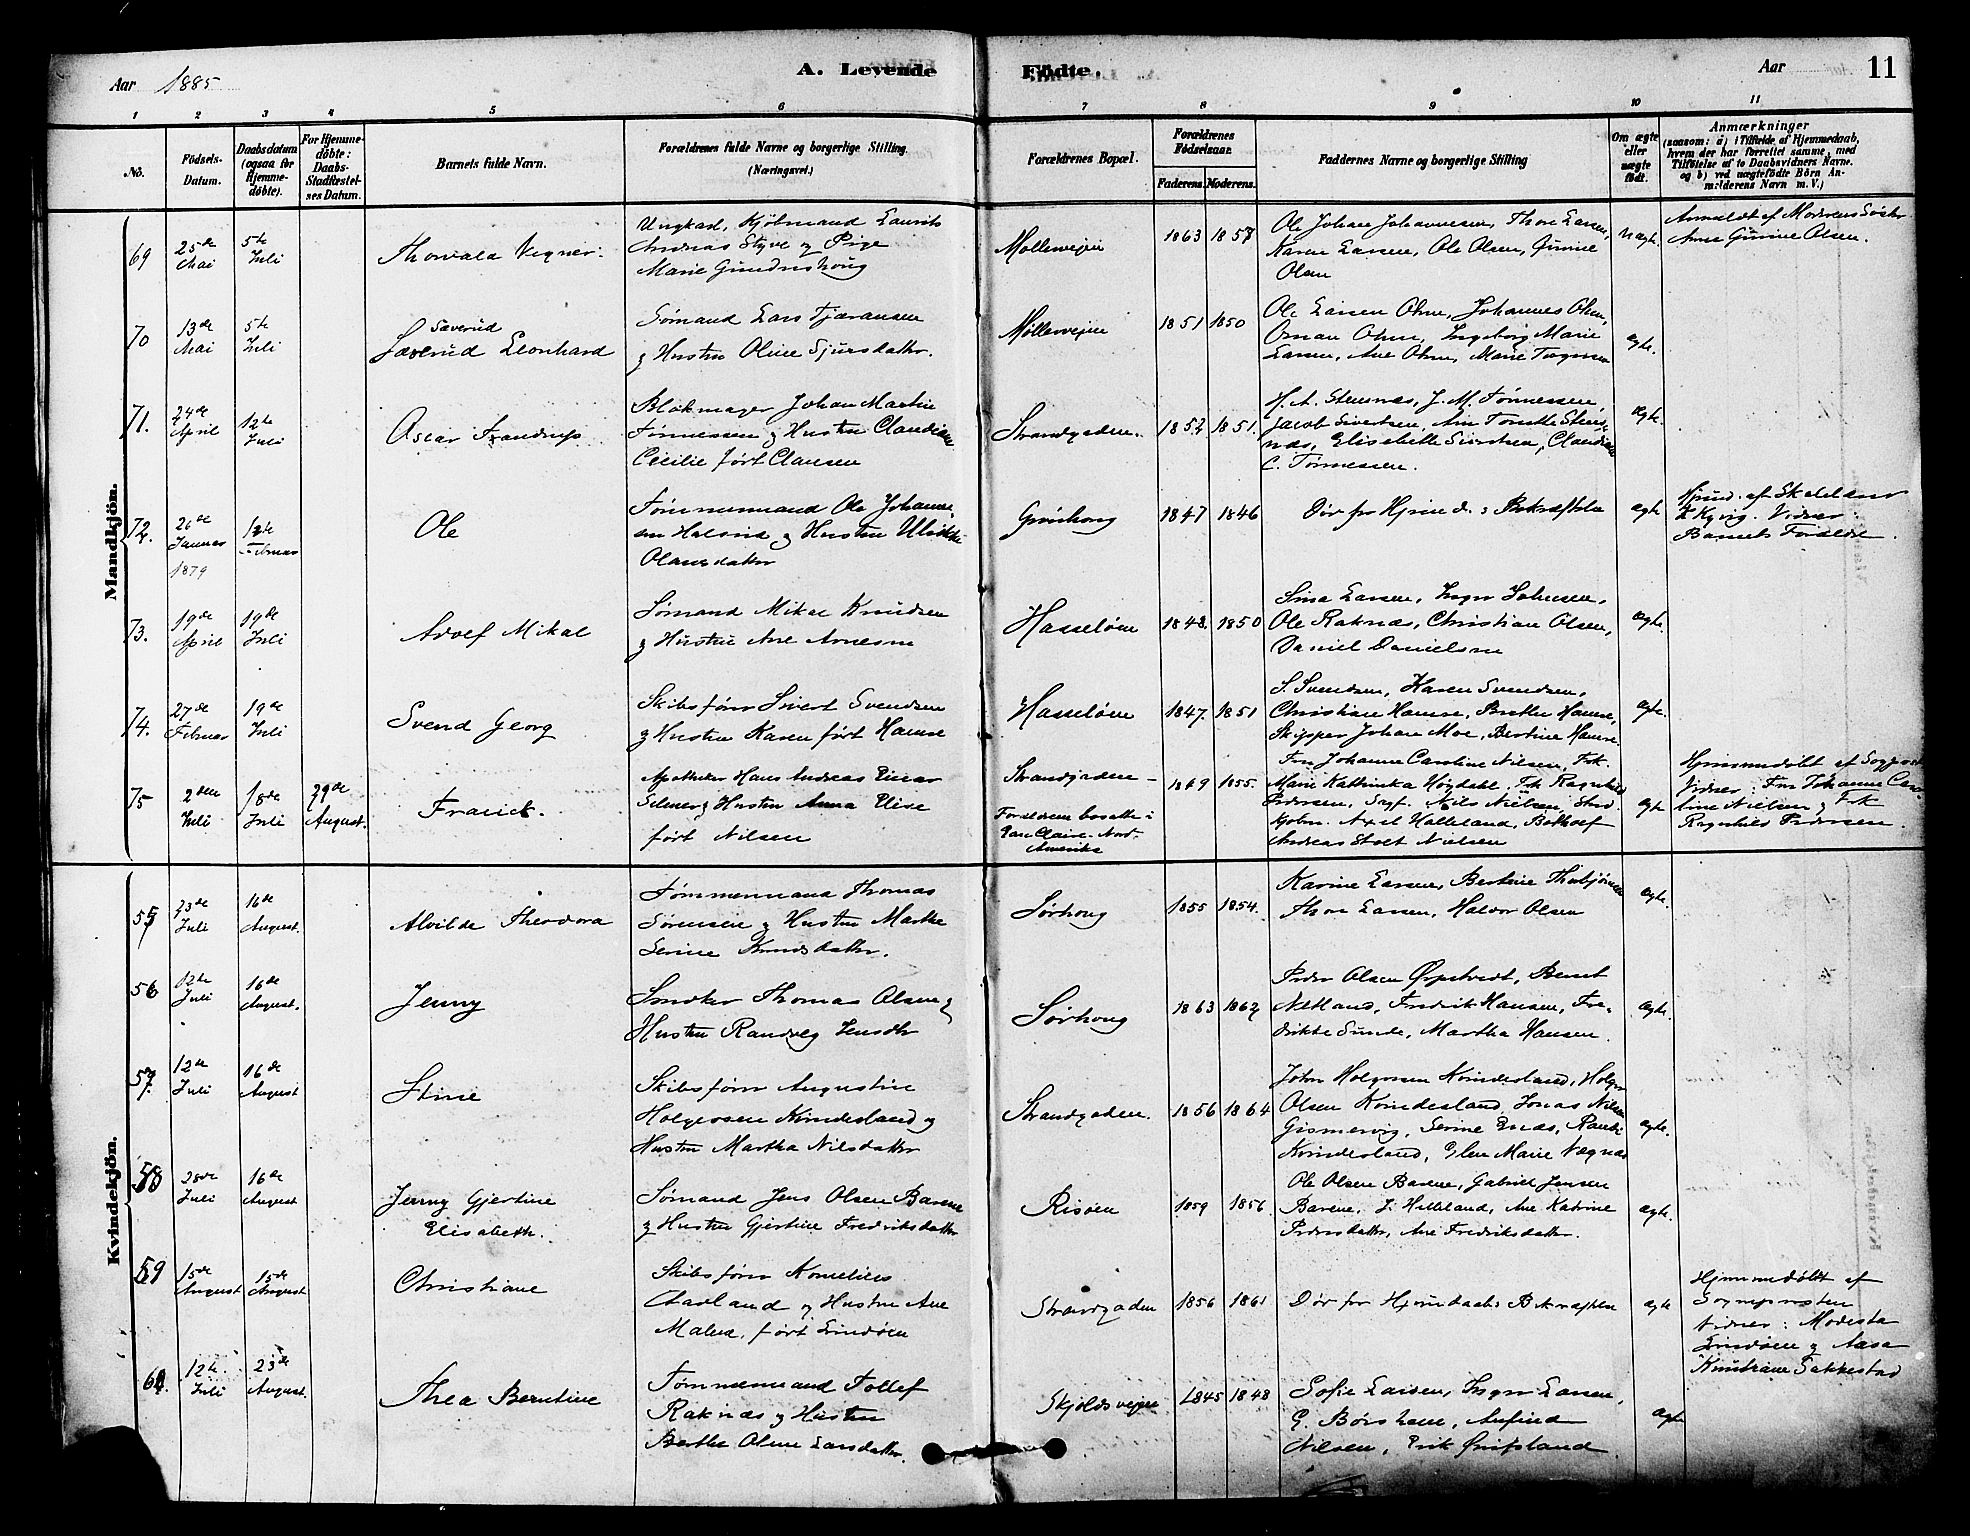 Aar 1885
A. Levende
Födte.
Aar
11
1 2 3 4 5 6 7 8 9 10 11
No.
Födsels-
Datum.
Daabsdatum
(ogsaa för
Hjemme-
döbte).
For Hjemme-
döbte:
Daabs-
Stadfæstel-
ses Datum.
Barnets fulde Navn.
Forældrenes fulde Navne og borgerlige Stilling
(Næringsvei.)
Forældrenes Bopæl.
Forældrenes
Födselsaar.
Faderens. Moderens.
Faddernes Navne og borgerlige Stilling
Om ægte
eller
uægte
födt.
Anmærkninger
(saasom: a) i Tilfælde af Hjemmedaab,
hvem der har forrettet samme, med
Tilföielse af to Daabsvidners Navne.
og b) ved uægtefödte Börn An-
melderens Navn m. V.)
Mandkjön.
69
25de
Mai
5te
Juli
Thorvald Vegner
Ungkarl, Kjøbmand Laurits
Andreas Styve og Pige
Marie Gundershoug
Møllerveien
1863 1857
Ole Johan Johannesen, Thore Larsen,
Karen Larsen, Ole Olsen, Gurine
Olsen
uægte.
Anmeldt af Moderens Søster
Anne Gurine Olsen.
70
13de
Mai
5te
Juli
Sæverud
Sæverud Leonhard
Sømand Lars Tjæransen
og Hustru Oline Sjursdatter.
Møllerveien
1851 1850
Ole Larsen Ohm, Johannes Ohm,
Oman Ohm, Ingeborg Marie
Larsen, Ane Ohm, Marie
ægte.
71.
24de
April
12te
Juli
Oscar Frandrup
Blokmager Johan Martin
Tønnessen og Hustru Claudine
Cecilie født Clausen
Strandgaden.
1852 1851.
H. A. Steensnæs, J. M. Tønnessen,
Jacob Sivertsen, Ane Tomette Steens
næs, Elisabeth Sivertsen, Claudine
C. Tønnessen.
ægte.
72.
26de
Januar
1879
12te
Februar
Ole
Tømmermand Ole Johannes
sen Halsvid og Hustru Ulrikke
Olausdatter
Grønhoug
1847 1846
Døv for Hjemd.s Bekræftelse
ægte
Hjemd. af Skolelærer
Z. Kyvig. Vidner
Barnets Forældre.
73.
19de
April
19de
Juli
Adolf Mikal
Sømand Mikal Knudsen
og Hustru Ane Arnesen
Hasseløen
1848. 1850
Sina Larsen, Inger Johnsen,
Ole Raknæs, Christian Olsen,
Daniel Danielsen
ægte.
74.
27de
Februar
19de
Juli
Svend Georg
Skibsfører Sivert Svendsen
og Hustru Karen født Hansen
Hasseløen
1847. 1851
S. Svendsen, Karen Svendsen,
Christian Hansen, Brethe Hansen,
Skipper Johan Moe, Bertine Hansen.
ægte.
75
2den
Juli
18de
Juli
29de
August.
Franck.
Apotheker Hans Andreas Einar
Selmer og Hustru Anna Elise
født Nilsen
Strandgaden –
Forældrene bosatte i
Eau Claire. Nord-
Amerika
1849 1855.
Fru Johanne Caroline Nilsen, Frk.
Marie Kathinka Høydahl, Frk Ragnhild
Pedersen, Sogp. Nils Nielsen, Stud
Kjøbm. Axel Halleland, Bothoef
Andreas Stolt Nielsen
ægte
Hjemmedøbt af Sogneprest
Vidner: Fru Johanne Caro
line Nielsen og Frk
Ragnhild Pedersen.
Kvindekjön.
55
23de
Juli
16de
August.
Alvilde Theodora
Tømmermand Thomas
Sørensen og Hustru Marthe
Serine Knudsdatter.
Sørhoug
1855 1854.
Karine Larsen, Bertine Thorbjørnsen
Thore Larsen, Halvor Olsen
ægte.
56
12te
Juli
16de
August.
Jenny
Snedker Thomas Olsen og
Hustru Randveg Jensdtr
Sørhoug
1863 1862
Peder Olsen Ørpetvedt, Berret
Netland, Fredrik Hansen, Fre-
drikke Sunde, Martha Hansen.
ægte.
57.
12te
Juli
16de
August
Stine
Skibsfører Augustin
Holgersen Kvindesland og
Hustru Martha Nilsdatter
Strandgaden.
1856 1864
John Holgersen Kvindesland, Holger
Olsen Kvindesland, Jonas Nilsen
Gismervig, Serine Enæs, Randi
Kvindesland, Elen Marie Vegnæs
ægte.
58
28de
Juli
16de
August
Jenny Gjertine
Elisabeth.
Sømand Jens Olsen Barene
og Hustru Gjertine Fredriksdatter
Risøen
1859 1856.
Ole Olsen Barene, Gabriel Jensen
Barene, J. Helleland, Ane Katrine
Pedersdatter, Ane Fredriksdatter.
ægte.
59
15de
August
15de
August
Christiane
Skibsfører Kornelius
Aarland og Hustru Ane
Malene, født Lindøen
Strandgaden
1856 1861
Døv for Hjemdaabs Bekræftelse
ægte
Hjemmedøbt af
Sognepresten
Vidner: Modesta
Lindøen og Aasa
Knutrane Sakkestad
60.
12te
Juli
23de
August.
Thea Berntine
Tømmermand Tollef
Raknæs og Hustru
Berthe Oline Larsdatter.
Skjoldsveien
1845 1848
Sofie Larsen, Inger Larsen,
G. Børshem, Anfind
Nilsen, Erik Qvifsland.
ægte